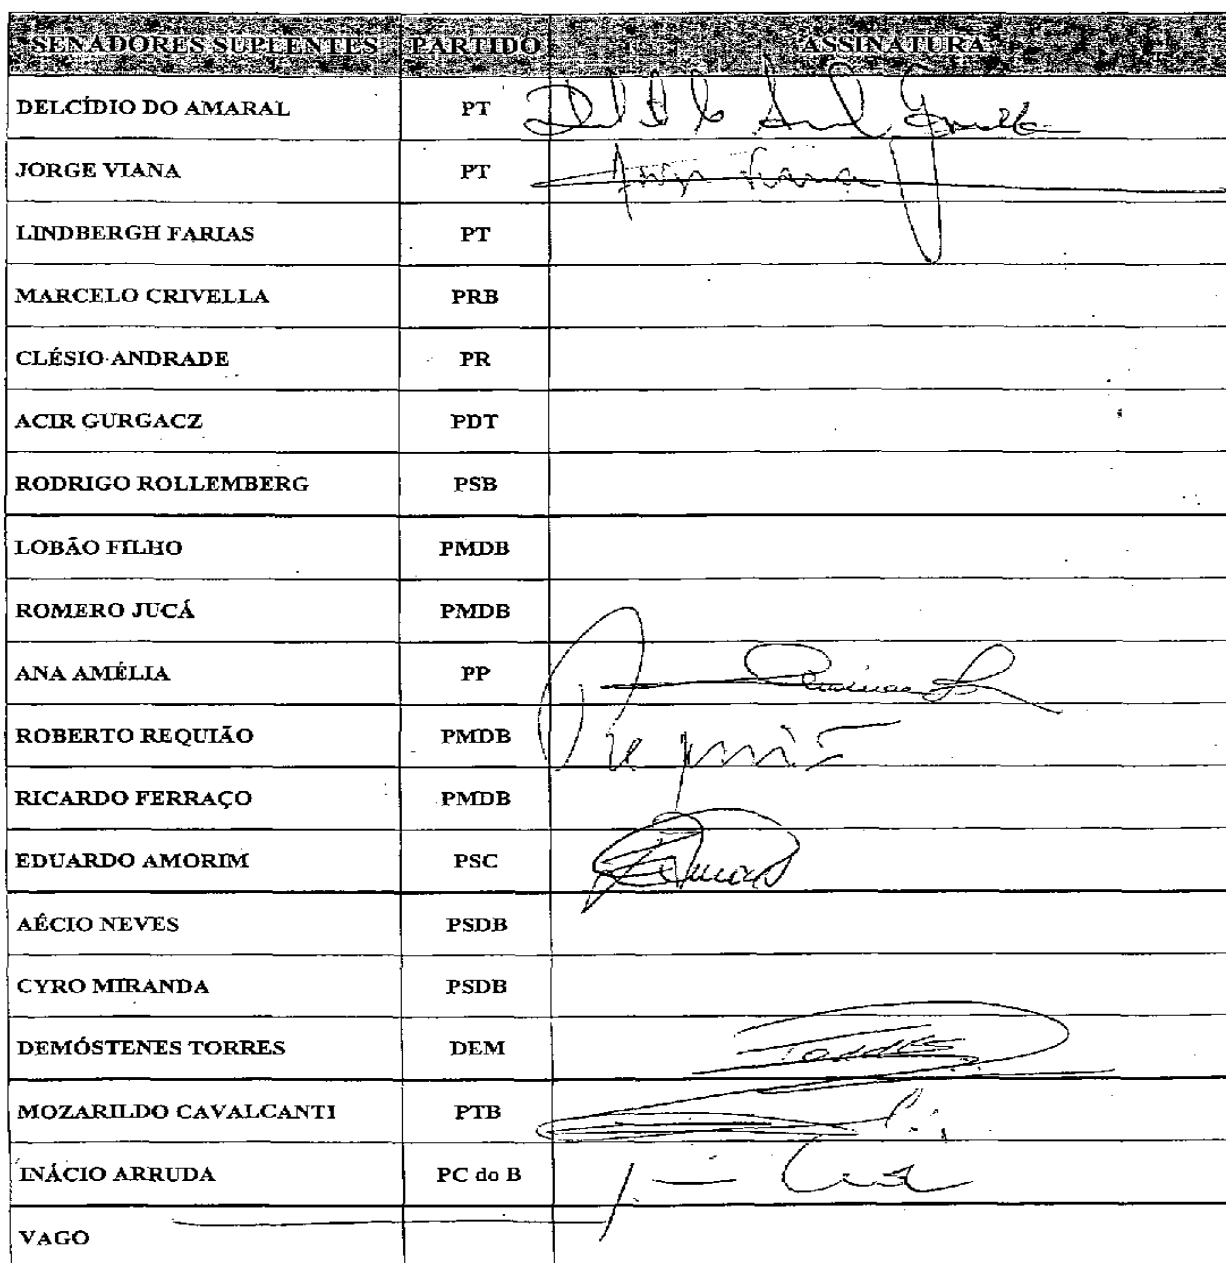 SENADORES SUPLENTES PARTIDO ASSINATURA
DELCÍDIO DO AMARAL PT
JORGE VIANA PT
LINDBERGH FARIAS PT
MARCELO CRIVELLA PRB
CLÉSIO ANDRADE PR
ACIR GURGACZ PDT
RODRIGO ROLLEMBERG PSB
LOBÃO FILHO PMDB
ROMERO JUCÁ PMDB
ANA AMÉLIA PP
ROBERTO REQUIÃO PMDB
RICARDO FERRAÇO PMDB
EDUARDO AMORIM PSC
AÉCIO NEVES PSDB
CYRO MIRANDA PSDB
DEMÓSTENES TORRES DEM
MOZARILDO CAVALCANTI PTB
INÁCIO ARRUDA PC do B
VAGO